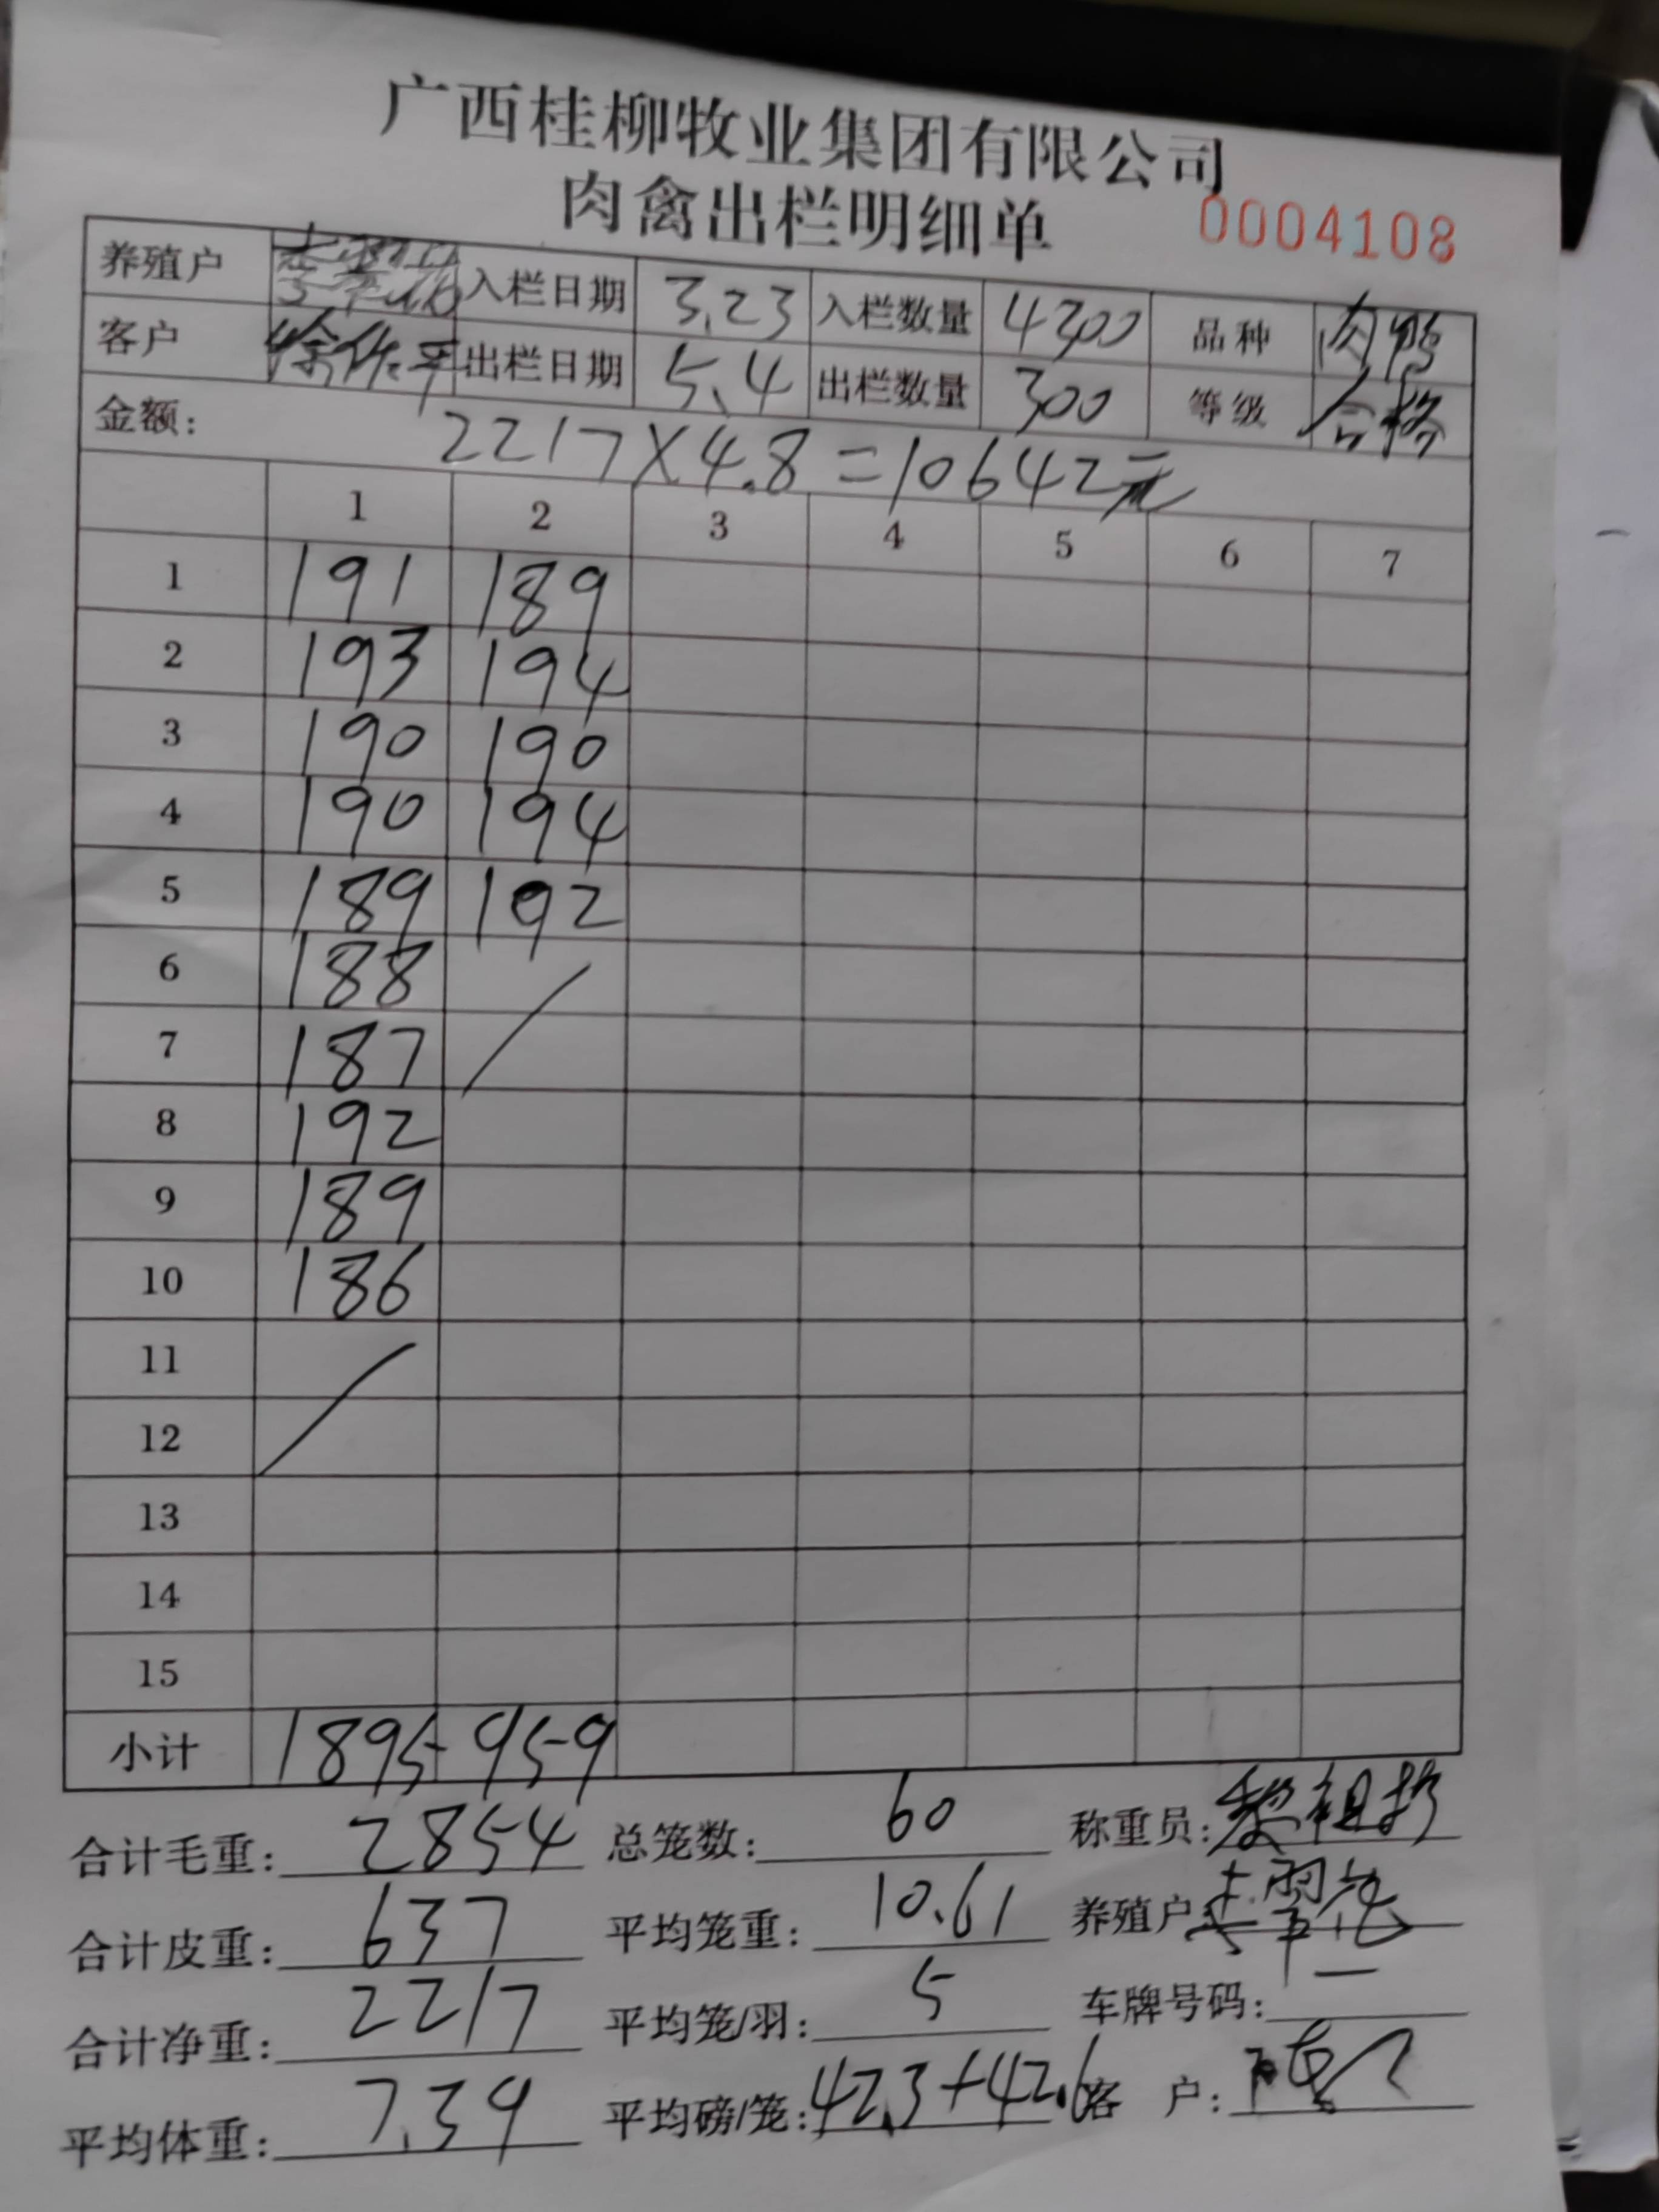 广西桂柳牧业集团有限公司
肉禽出栏明细单 0004108
养殖户 李翠花 入栏日期 3.23 入栏数量 4300 品种 肉鸭
客户 徐作平 出栏日期 5.4 出栏数量 300 等级 合格
金额: 2217×4.8=10642元
1 2 3 4 5 6 7
1 191 189
2 193 194
3 190 190
4 190 194
5 189 192
6 188
7 187
8 192
9 189
10 186
11
12
13
14
15
小计 1895 959
合计毛重: 2854 总笼数: 60 称重员: 黎祖
合计皮重: 637 平均笼重: 10.61 养殖户 李翠花
合计净重: 2217 平均笼/羽: 5 车牌号码: 一
平均体重: 7.39 平均磅/笼: 42.3+42.6 客 户: